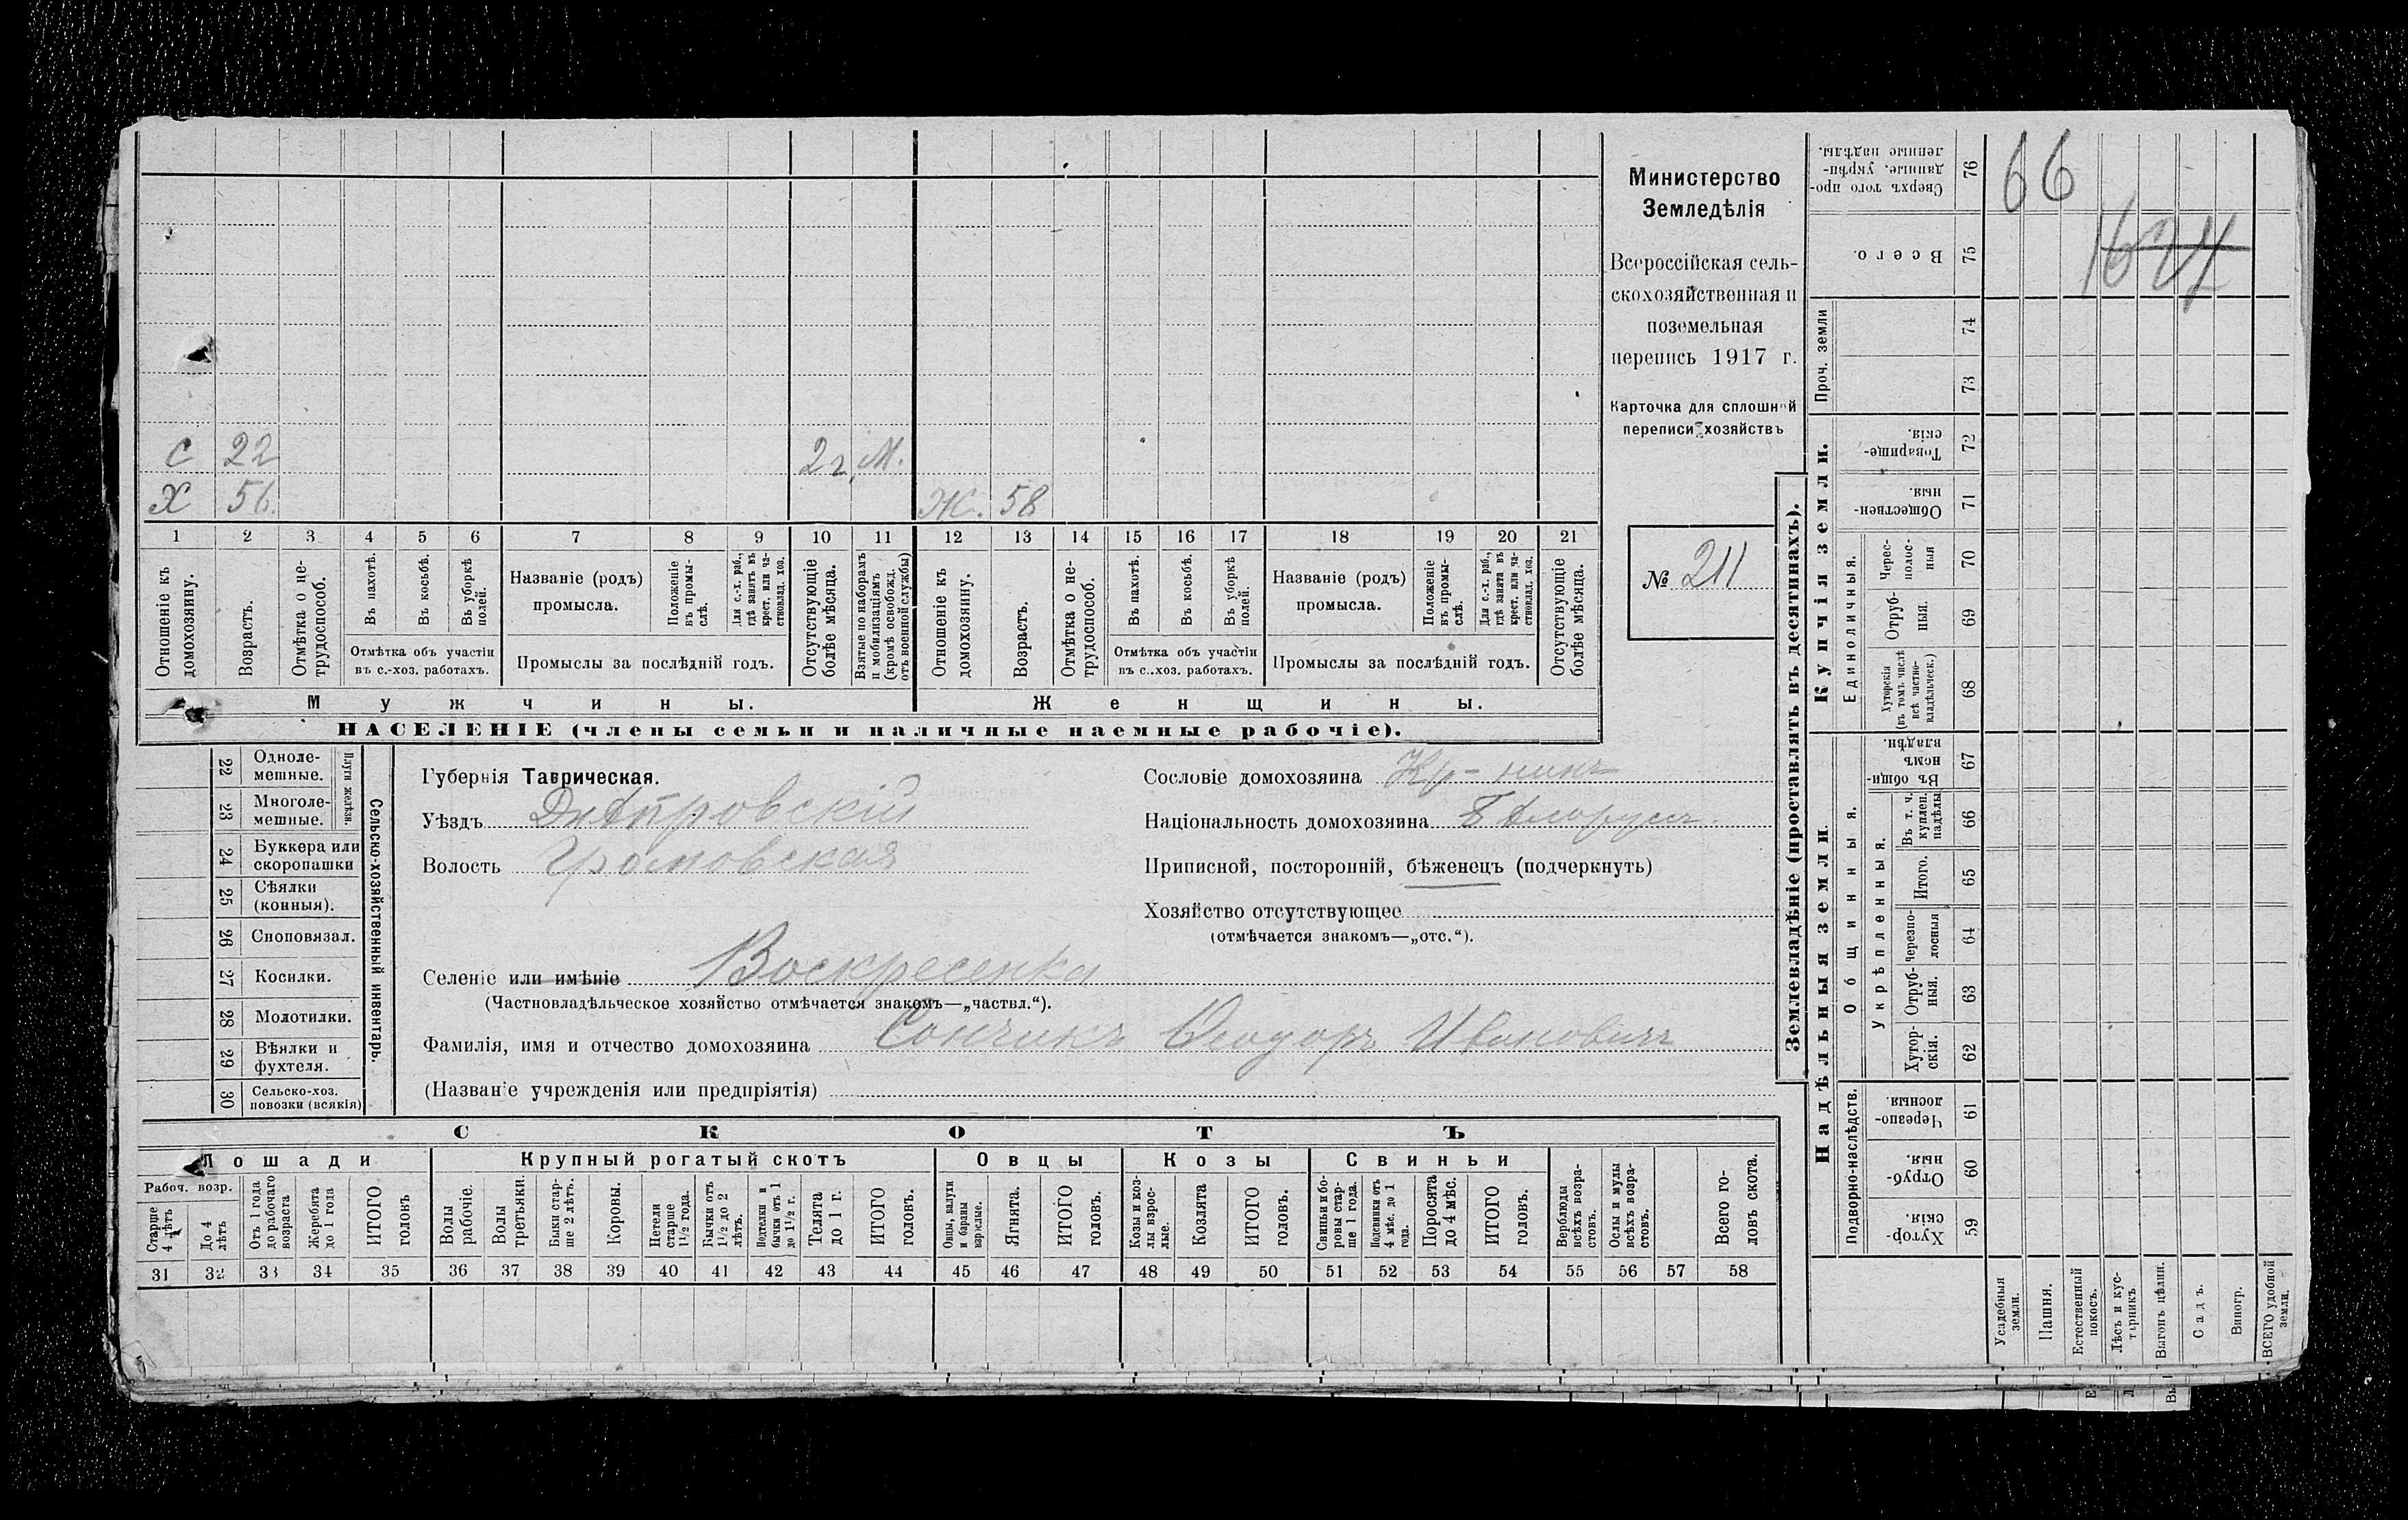 Министерство
Земледѣлія
Всероссійская сель-
скохозяйственная и
поземельная
перепись 1917 г.
Карточка для сплошной
переписи хозяйствъ
№ 211
С 22 2 г. М.
Х 56. Ж. 58
1 2 3 4 5 6 7 8 9 10 11 12 13 14 15 16 17 18 19 20 21
Отношеніе къ домохозяину.
Возрастъ.
Отмѣтка о не-трудоспособ.
Въ пахотѣ.
Въ косьбѣ.
Въ уборкѣ полей.
Отмѣтка объ участіи
въ с.-хоз. работахъ.
Названіе (родъ)
промысла.
Положеніе въ промы-слѣ.
Для с.-х. раб., гдѣ занятъ въ крест. или ча-стновлад. хоз.
Промыслы за послѣдній годъ.
Отсутствующіе болѣе мѣсяца.
Взятые по наборамъ и мобилизаціямъ (кромѣ освобожд. отъ военной службы)
Отношеніе къ домохозяину.
Возрастъ.
Отмѣтка о не-трудоспособ.
Въ пахотѣ.
Въ косьбѣ.
Въ уборкѣ полей.
Отмѣтка объ участіи
въ с..хоз. работахъ.
Названіе (родъ)
промысла.
Положеніе въ промы-слѣ.
Для с.-х. раб., гдѣ занята въ крест. или ча-стновлад. хоз.
Промыслы за послѣдній годъ.
Отсутствующіе болѣе мѣсяца.
Мужчины. Женщины.
НАСЕЛЕНІЕ (члены семьи и наличные наемные рабочіе).
22 Одноле-мешные.
23 Многоле-мешные.
Плуги желѣзн.
24 Буккера или скоропашки
25 Сѣялки (конныя).
26 Сноповязал.
27 Косилки.
28 Молотилки.
29 Вѣялки и фухтеля.
30 Сельско-хоз. повозки (всякія)
Сельско-хозяйственный инвентарь.
Губернія Таврическая.
Уѣздъ Днѣпровскій
Волость Громовская
Селеніе или имѣніе Воскресенка
(Частновладѣльческое хозяйство отмѣчается знакомъ—„частвл.“).
Фамилія, имя и отчество домохозяина Сончикъ Ѳеодоръ Ивановичъ
(Названіе учрежденія или предпріятія)
Сословіе домохозяина Кр-нинъ
Національность домохозяина Бѣлорусъ.
Приписной, посторонній, бѣженецъ (подчеркнуть)
Хозяйство отсутствующее
(отмѣчается знакомъ—„отс.“).
СКОТЪ
Лошади Крупный рогатый скотъ Овцы Козы Свиньи
Рабоч. возр.
Старше 4 лѣтъ
До 4 лѣтъ
Отъ 1 года до рабочаго возраста
Жеребята до 1 года
ИТОГО головъ
Волы рабочіе.
Волы третьяки.
Быки стар-ше 2 лѣтъ.
Коровы.
Нетели старше 1½ года.
Бычки отъ 1½ до 2 лѣтъ.
Подтелки и бычки отъ 1 до 1½ г.
Телята до 1 г.
ИТОГО головъ.
Овцы, валухи и бараны взрослые.
Ягнята.
ИТОГО головъ.
Козы и коз-лы взрос-лые.
Козлята
ИТОГО головъ.
Свиньи и бо-ровы стар-ше 1 года.
Подсвинки отъ 4 мѣс. до 1 года.
Поросята до 4 мѣс.
ИТОГО головъ.
Верблюды всѣхъ возра-стовъ.
Ослы и мулы всѣхъ возра-стовъ.
Всего го-ловъ скота.
31 32 33 34 35 36 37 38 39 40 41 42 43 44 45 46 47 48 49 50 51 52 53 54 55 56 57 58
Землевладѣніе (проставлять въ десятинахъ).
Надѣльныя земли. Купчія земли. Проч. земли
Подворно-наслѣдств.
Общинныя.
Укрѣпленныя.
Единоличныя.
Сверхъ того про-данные, укрѣп-ленные надѣлы. 76
66
Всего. 75
1624
74
73
Товарище-скія. 72
Обществен-ныя. 71
Черес-полос-ныя 70
Отруб-ныя. 69
Хуторскія (въ томъ числѣ всѣ частно-владѣльческ.) 68
Въ общи-номъ владѣн. 67
Въ т. ч. куплен. надѣлы 66
Итого. 65
Черезпо-лосныя 64
Отруб-ныя. 63
Хутор-скія. 62
Черезпо-лосныя. 61
Отруб-ныя. 60
Хутор-скія. 59
Усадебныя земли.
Пашня.
Естественный покосъ.
Лѣсъ и кус-тарникъ.
Выгонъ цѣлин.
Садъ.
Виногр.
ВСЕГО удобной земли.